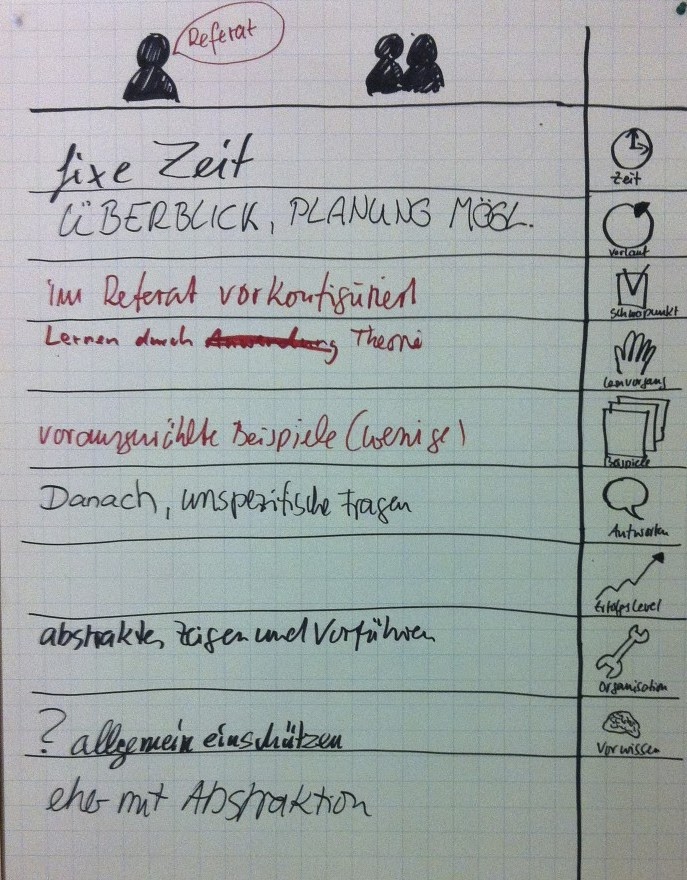 Referat
fixe Zeit
Zeit
ÜBERBLICK, PLANUNG MÖGL.
Verlauf
im Referat vorkonfiguriert
Schwerpunkt
Lernen durch Anwendung Theorie
Lernvorgang
vorausgewählte Beispiele (wenige)
Beispiele
Danach, unspezifische Fragen
Antworten
Erfolgslevel
abstraktes, zeigen und Vorführen
Organisation
? allgemein einschätzen
Vorwissen
eher mit Abstraktion